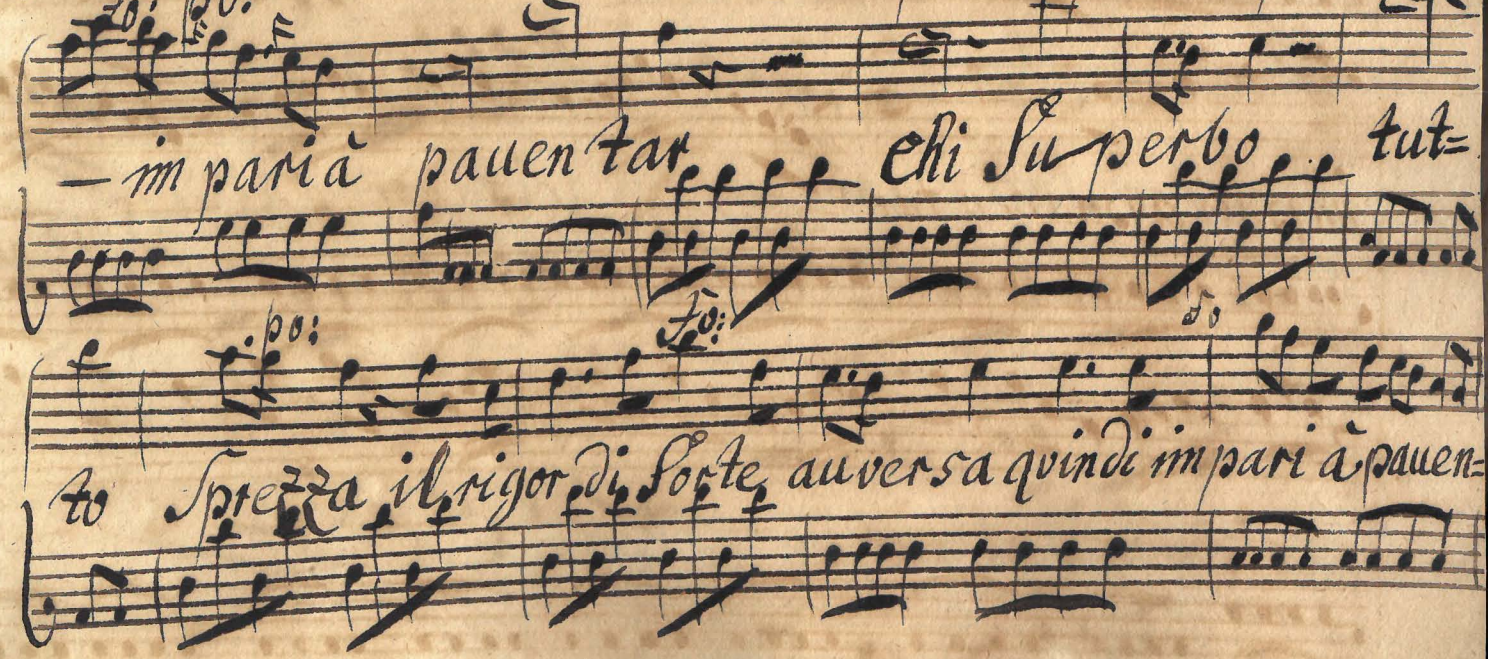 fo: po:
– im pari à pauen tar chi Su perbo tut=
po: fo: fo
to Sprezza il rigor di Sorte auversa quindi im pari à pauen=